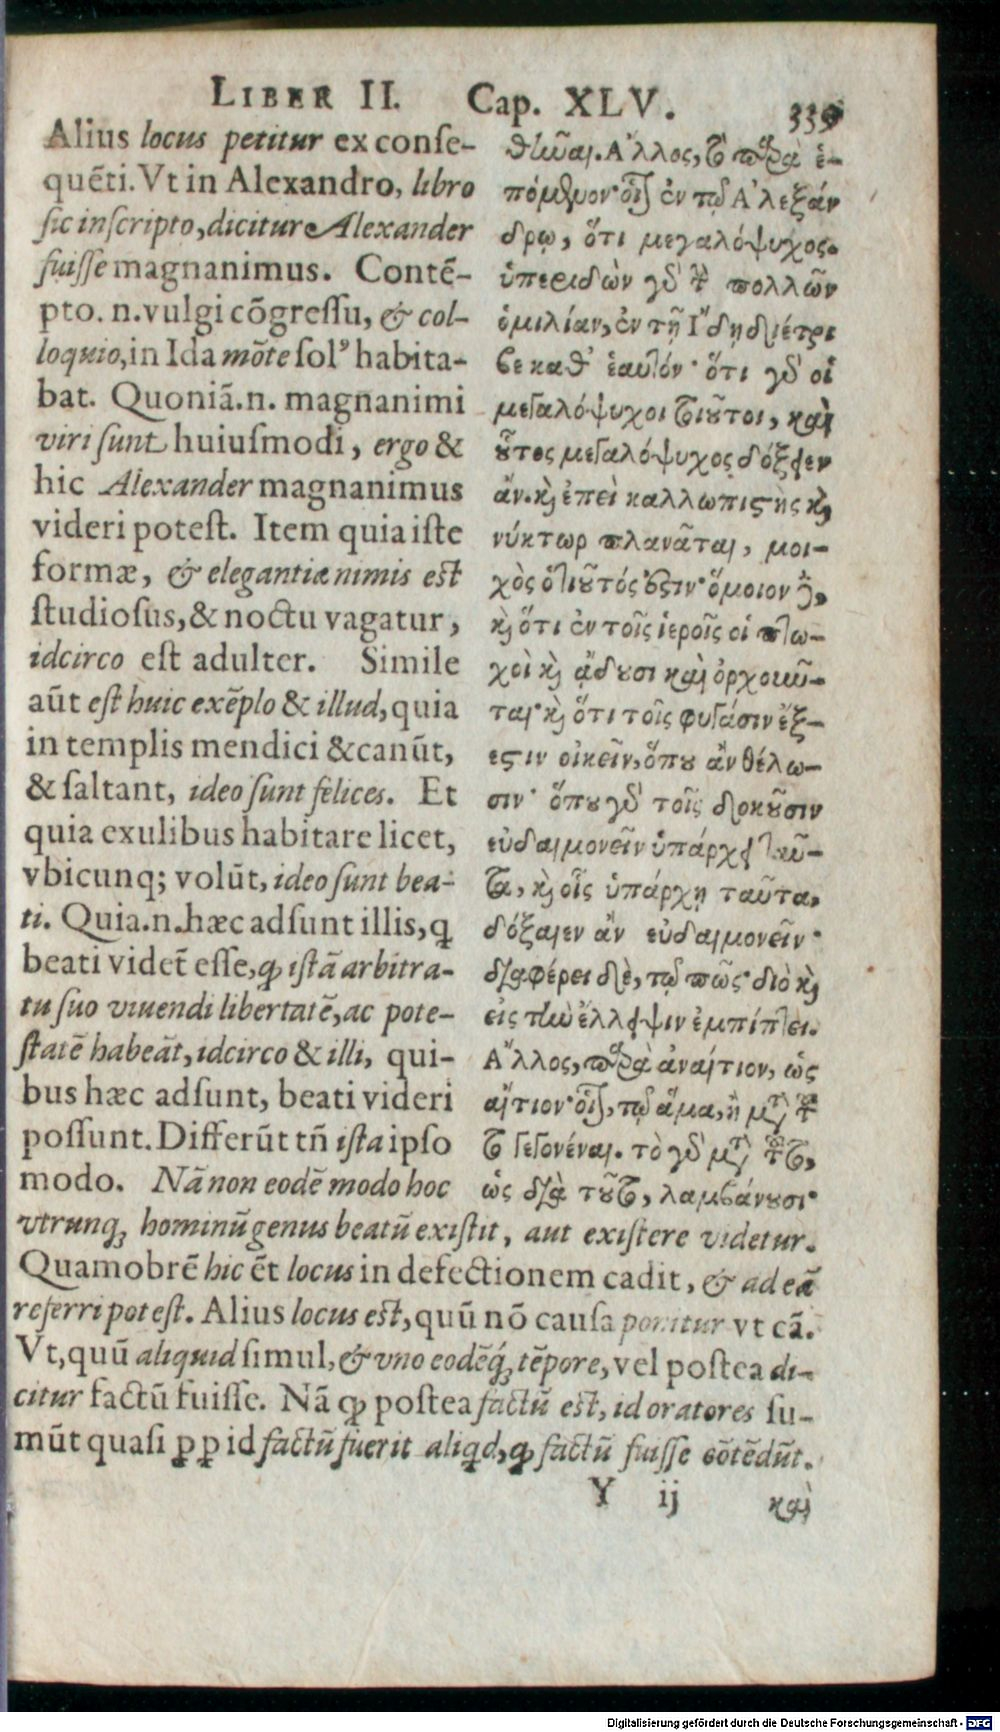 LIBER II. Cap. XLV. 339
Alius locus petitur ex conſe-
quẽti. Vt in Alexandro, libro
ſic inſcripto, dicitur Alexander
fuiſſe magnanimus. Contẽ-
pto. n. vulgi cõgreſſu, & col-
loquio, in Ida mõte ſolꝰ habita-
bat. Quoniã. n. magnanimi
viri ſunt huiuſmodi, ergo &
hic Alexander magnanimus
videri poteſt. Item quia iſte
formæ, & elegantiæ nimis eſt
ſtudioſus, & noctu vagatur,
idcirco eſt adulter. Simile
aũt eſt huic exẽplo & illud, quia
in templis mendici & canũt,
& ſaltant, ideo ſunt felices. Et
quia exulibus habitare licet,
vbicunq; volũt, ideo ſunt bea-
ti. Quia. n. hæc adſunt illis, q
beati videt̃ eſſe, ꝙ iſtã arbitra-
tu ſuo viuendi libertatẽ, ac pote-
ſtatẽ habeãt, idcirco & illi, qui-
bus hæc adſunt, beati videri
poſſunt. Differũt tñ iſta ipſo
modo. Nã non eodẽ modo hoc
θῆναι. Ἄλλος, τὸ παρὰ ἑ-
πόμενον· οἷον ἐν τῷ Ἀλεξάν
δρῳ, ὅτι μεγαλόψυχος.
ὑπεριδὼν γὰρ τὴν πολλῶν
ὁμιλίαν, ἐν τῇ Ἴδῃ διέτρι
βε καθ' ἑαυτόν· ὅτι γὰρ οἱ
μεγαλόψυχοι τοιοῦτοι, καὶ
οὗτος μεγαλόψυχος δόξειεν
ἄν. καὶ ἐπεὶ καλλωπιστὴς καὶ
νύκτωρ πλανᾶται, μοι-
χὸς ὅτι τοιοῦτός ἐστιν· ὅμοιον δὲ,
καὶ ὅτι ἐν τοῖς ἱεροῖς οἱ πτω-
χοὶ καὶ ᾄδουσι καὶ ὀρχοῦν-
ται· καὶ ὅτι τοῖς φυγάσιν ἔξ-
εστιν οἰκεῖν, ὅπου ἂν θέλω-
σιν· ὅπου γὰρ τοῖς δοκοῦσιν
εὐδαιμονεῖν ὑπάρχει ταῦ-
τα, καὶ οἷς ὑπάρχῃ ταῦτα,
δόξαιεν ἂν εὐδαιμονεῖν·
διαφέρει δὲ, τῷ πῶς· διὸ καὶ
εἰς τὴν ἔλλειψιν ἐμπίπτει.
Ἄλλος, παρὰ ἀναίτιον, ὡς
αἴτιον· οἷον, τῷ ἅμα, ἢ μετὰ τοῦ-
το γεγονέναι. τὸ γὰρ μετὰ τοῦτο,
ὡς διὰ τοῦτο, λαμβάνουσι·
vtrunq; hominũ genus beatũ exiſtit, aut exiſtere videtur.
Quamobrẽ hic ẽt locus in defectionem cadit, & ad eã
referri poteſt. Alius locus eſt, quũ nõ cauſa ponitur vt cã.
Vt, quũ aliquid ſimul, & vno eodẽq; tẽpore, vel poſtea di-
citur factũ fuiſſe. Nã ꝙ poſtea factũ eſt, id oratores ſu-
mũt quaſi ꝓp id factũ fuerit aliqd, ꝙ factũ fuiſſe cõtẽdũt.
Y ij καὶ
Digitalisierung gefördert durch die Deutsche Forschungsgemeinschaft - DFG